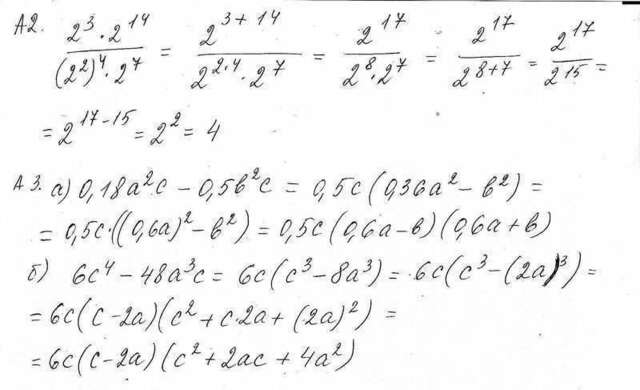 А2. (2³·2¹⁴)/((2²)⁴·2⁷) = 2³⁺¹⁴/(2²·⁴·2⁷) = 2¹⁷/(2⁸·2⁷) = 2¹⁷/2⁸⁺⁷ = 2¹⁷/2¹⁵ =
= 2¹⁷⁻¹⁵ = 2² = 4
А3. а) 0,18a²c - 0,5b²c = 0,5c(0,36a² - b²) =
= 0,5c·((0,6a)² - b²) = 0,5c(0,6a - b)(0,6a + b)
б) 6c⁴ - 48a³c = 6c(c³ - 8a³) = 6c(c³ - (2a)³) =
= 6c(c - 2a)(c² + c·2a + (2a)²) =
= 6c(c - 2a)(c² + 2ac + 4a²)